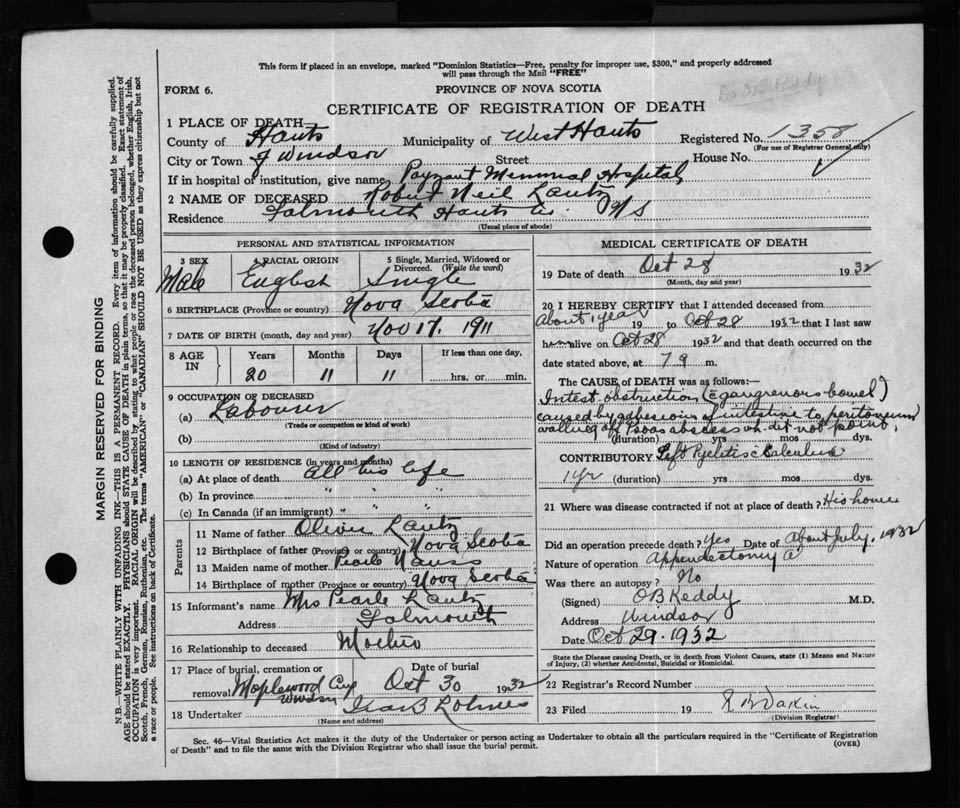 This form if placed in an envelope, marked "Dominion Statistics—Free, penalty for improper use, $300," and properly addressed
will pass through the Mail "FREE"
FORM 6.
PROVINCE OF NOVA SCOTIA
CERTIFICATE OF REGISTRATION OF DEATH
1 PLACE OF DEATH
County of Hants Municipality of West Hants Registered No. 1358
(For use of Registrar General only)
City or Town of Windsor Street House No.
If in hospital of institution, give name Payzant Memorial Hospital
2 NAME OF DECEASED Robert Neil Lantz
Residence Falmouth Hants Co. NS
(Usual place of abode)
PERSONAL AND STATISTICAL INFORMATION
3 SEX 4 RACIAL ORIGIN 5 Single, Married, Widowed or Divorced. (Write the word)
Male English Single
6 BIRTHPLACE (Province or country) Nova Scotia
7 DATE OF BIRTH (month, day and year) Nov 17. 1911
8 AGE IN Years Months Days If less than one day,
20 11 11 hrs. or min.
9 OCCUPATION OF DECEASED
(a) Labourer
(Trade or occupation or kind of work)
(b)
(Kind of industry)
10 LENGTH OF RESIDENCE (in years and months)
(a) At place of death All his life
(b) In province " " "
(c) In Canada (if an immigrant) " " "
Parents
11 Name of father Oliver Lantz
12 Birthplace of father (Province or country) Nova Scotia
13 Maiden name of mother Pearle
14 Birthplace of mother (Province or country) Nova Scotia
15 Informant's name Mrs Pearle Lantz
Address Falmouth
16 Relationship to deceased Mother
17 Place of burial, cremation or removal Maplewood Cem Windsor Date of burial Oct 30 1932
18 Undertaker
(Name and address)
MEDICAL CERTIFICATE OF DEATH
19 Date of death Oct 28 1932
(Month, day and year)
20 I HEREBY CERTIFY that I attended deceased from
About 1 year 19 to Oct 28 1932 that I last saw
him alive on Oct 28 1932 and that death occurred on the
date stated above, at 7 9 m.
The CAUSE OF DEATH was as follows:—
Intest. obstruction (c gangrenous bowel)
caused by adhesions of intestine to peritoneum
walling off Psoas abscess wh. did not point.
(duration) yrs mos dys.
CONTRIBUTORY Left Pyelitis c Calculus
1 yr (duration) yrs mos dys.
21 Where was disease contracted if not at place of death? His home
Did an operation precede death? Yes Date of About July, 1932
Nature of operation Appendectomy
Was there an autopsy? No
(Signed) O B Keddy M.D.
Address Windsor
Date Oct 29. 1932
State the Disease causing Death, or in death from Violent Causes, state (1) Means and Nature
of Injury, (2) whether Accidental, Suicidal or Homicidal.
22 Registrar's Record Number
23 Filed 19
(Division Registrar)
Sec. 46—Vital Statistics Act makes it the duty of the Undertaker or person acting as Undertaker to obtain all the particulars required in the "Certificate of Registration
of Death" and to file the same with the Division Registrar who shall issue the burial permit.
(OVER)
MARGIN RESERVED FOR BINDING
N.B.—WRITE PLAINLY WITH UNFADING INK—THIS IS A PERMANENT RECORD. Every item of information should be carefully supplied.
AGE should be stated EXACTLY. PHYSICIANS should STATE CAUSE OF DEATH in plain terms, so that it may be properly classified. Exact statement of
OCCUPATION is very important. RACIAL ORIGIN will be described by stating to what people or race the deceased person belonged, whether English, Irish,
Scotch, French, German, Russian, Ruthenian, etc. The terms "AMERICAN" or "CANADIAN" SHOULD NOT BE USED as they express citizenship but not
a race or people. See instructions on back of Certificate.